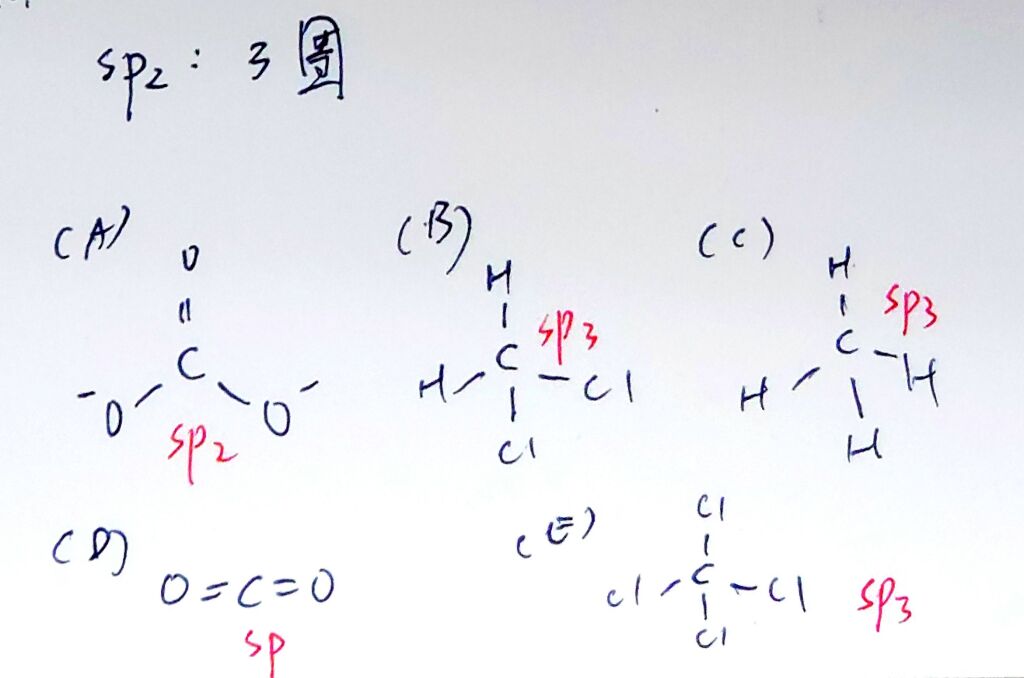 sp2 : 3
(A)
O
||
C
-O / \ O-
sp2
(B)
H
|
C sp3
H / - Cl
|
Cl
(C)
H
|
C sp3
H / - H
|
H
(D)
O=C=O
sp
(E)
Cl
|
Cl / C - Cl sp3
|
Cl